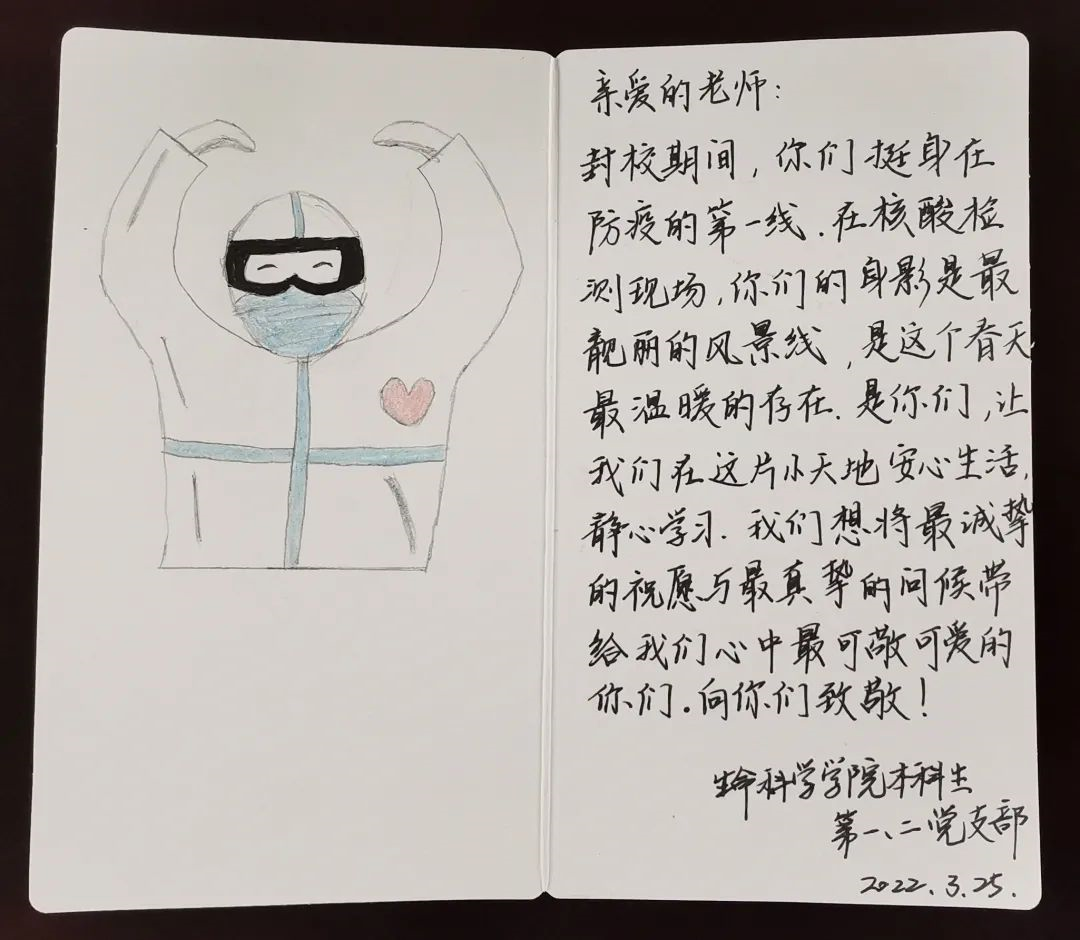 亲爱的老师:
封校期间,你们挺身在
防疫的第一线.在核酸检
测现场,你们的身影是最
靓丽的风景线,是这个春天
最温暖的存在.是你们,让
我们在这片小天地安心生活,
静心学习.我们想将最诚挚
的祝愿与最真挚的问候带
给我们心中最可敬可爱的
你们.向你们致敬!
生命科学学院本科生
第一、二党支部
2022.3.25.